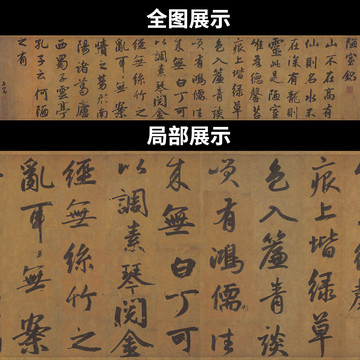 全图展示
陋室銘
山不在高有
仙則名水不
在深有龍則
靈斯是陋室
惟吾德馨苔
痕上堦綠草
色入簾青談
笑有鴻儒往
來無白丁可
以調素琴閱金
經無絲竹之
亂耳無案
牘之勞形南
陽諸葛廬
西蜀子雲亭
孔子云何陋
之有
局部展示
痕上堦綠草
色入簾青談
笑有鴻儒往
來無白丁可
以調素琴閱金
經無絲竹之
亂耳無案